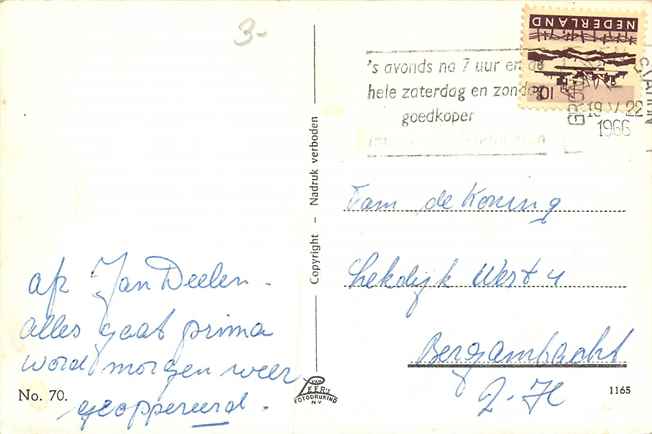 3-
NEDERLAND
10c
's avonds na 7 uur en de
hele zaterdag en zondag
goedkoper
19 V 22
1966
Copyright - Nadruk verboden
Fam de Koning
Lekdijk West 4
Bergambacht
Z-H
afz Jan Deelen.
alles gaat prima
word morgen weer
geopereerd.
No. 70.
VAN
LEER'S
FOTODRUKIND
N.V.
1165